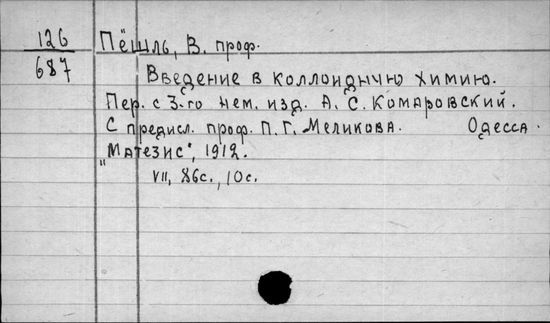 126 Пёшль, В. проф.
687
Введение в коллоидную химию.
Пер. с 3-го нем. изд. А. С. Комаровский.
С предисл. проф. П. Г. Меликова. Одесса.
„Матезис", 1912.
VII, 86с., 10с.